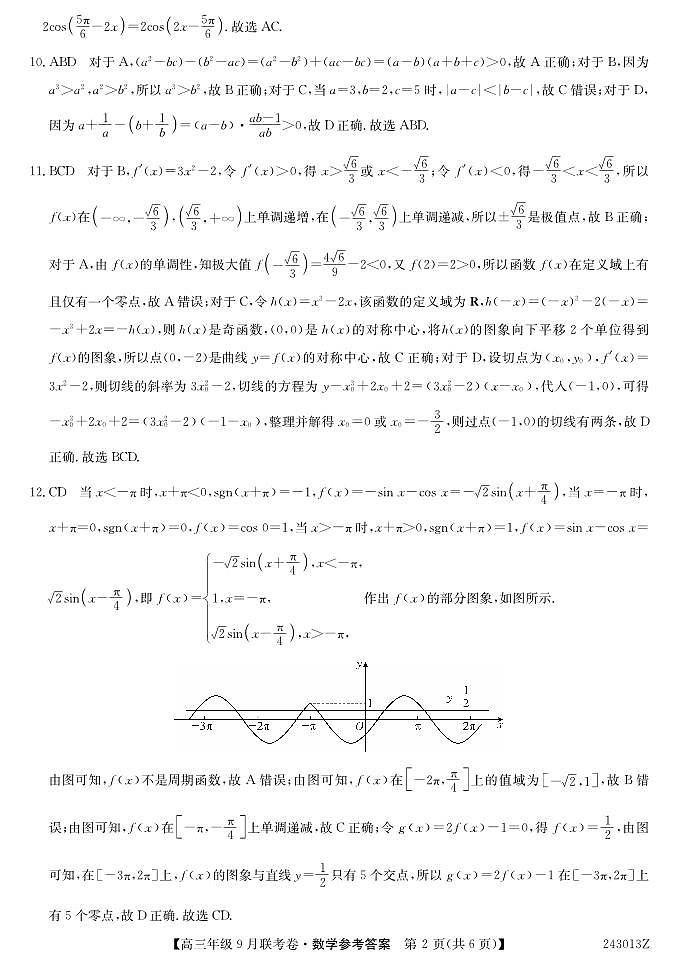 2cos(5π/6−2x)=2cos(2x−5π/6).故选 AC.
10. ABD 对于 A,(a²−bc)−(b²−ac)=(a²−b²)+(ac−bc)=(a−b)(a+b+c)>0,故 A 正确;对于 B,因为
a³>a²,a²>b²,所以 a³>b²,故 B 正确;对于 C,当 a=3,b=2,c=5 时,|a−c|<|b−c|,故 C 错误;对于 D,
因为 a+1/a−(b+1/b)=(a−b)·(ab−1)/ab>0,故 D 正确.故选 ABD.
11. BCD 对于 B,f′(x)=3x²−2,令 f′(x)>0,得 x>√6/3 或 x<−√6/3;令 f′(x)<0,得−√6/3<x<√6/3,所以
f(x)在(−∞,−√6/3),(√6/3,+∞)上单调递增,在(−√6/3,√6/3)上单调递减,所以±√6/3是极值点,故 B 正确;
对于 A,由 f(x)的单调性,知极大值 f(−√6/3)=4√6/9−2<0,又 f(2)=2>0,所以函数 f(x)在定义域上有
且仅有一个零点,故 A 错误;对于 C,令 h(x)=x³−2x,该函数的定义域为 R,h(−x)=(−x)³−2(−x)=
−x³+2x=−h(x),则 h(x)是奇函数,(0,0)是 h(x)的对称中心,将h(x)的图象向下平移 2 个单位得到
f(x)的图象,所以点(0,−2)是曲线 y=f(x)的对称中心,故 C 正确;对于 D,设切点为(x₀,y₀),f′(x)=
3x²−2,则切线的斜率为 3x₀²−2,切线的方程为 y−x₀³+2x₀+2=(3x₀²−2)(x−x₀),代入(−1,0),可得
−x₀³+2x₀+2=(3x₀²−2)(−1−x₀),整理并解得 x₀=0 或 x₀=−3/2,则过点(−1,0)的切线有两条,故 D
正确.故选 BCD.
12. CD 当 x<−π 时,x+π<0,sgn(x+π)=−1,f(x)=−sin x−cos x=−√2sin(x+π/4),当 x=−π 时,
x+π=0,sgn(x+π)=0,f(x)=cos 0=1,当 x>−π 时,x+π>0,sgn(x+π)=1,f(x)=sin x−cos x=
√2sin(x−π/4),即 f(x)={−√2sin(x+π/4),x<−π,
1,x=−π,
√2sin(x−π/4),x>−π,
作出 f(x)的部分图象,如图所示.
y
1
y 1/2
−3π −2π −π O π 2π x
由图可知,f(x)不是周期函数,故 A 错误;由图可知,f(x)在[−2π,π/4]上的值域为[−√2,1],故 B 错
误;由图可知,f(x)在[−π,−π/4]上单调递减,故 C 正确;令 g(x)=2f(x)−1=0,得 f(x)=1/2,由图
可知,在[−3π,2π]上,f(x)的图象与直线 y=1/2只有 5 个交点,所以 g(x)=2f(x)−1 在[−3π,2π]上
有 5 个零点,故 D 正确.故选 CD.
【高三年级 9 月联考卷·数学参考答案 第 2 页(共 6 页)】 243013Z